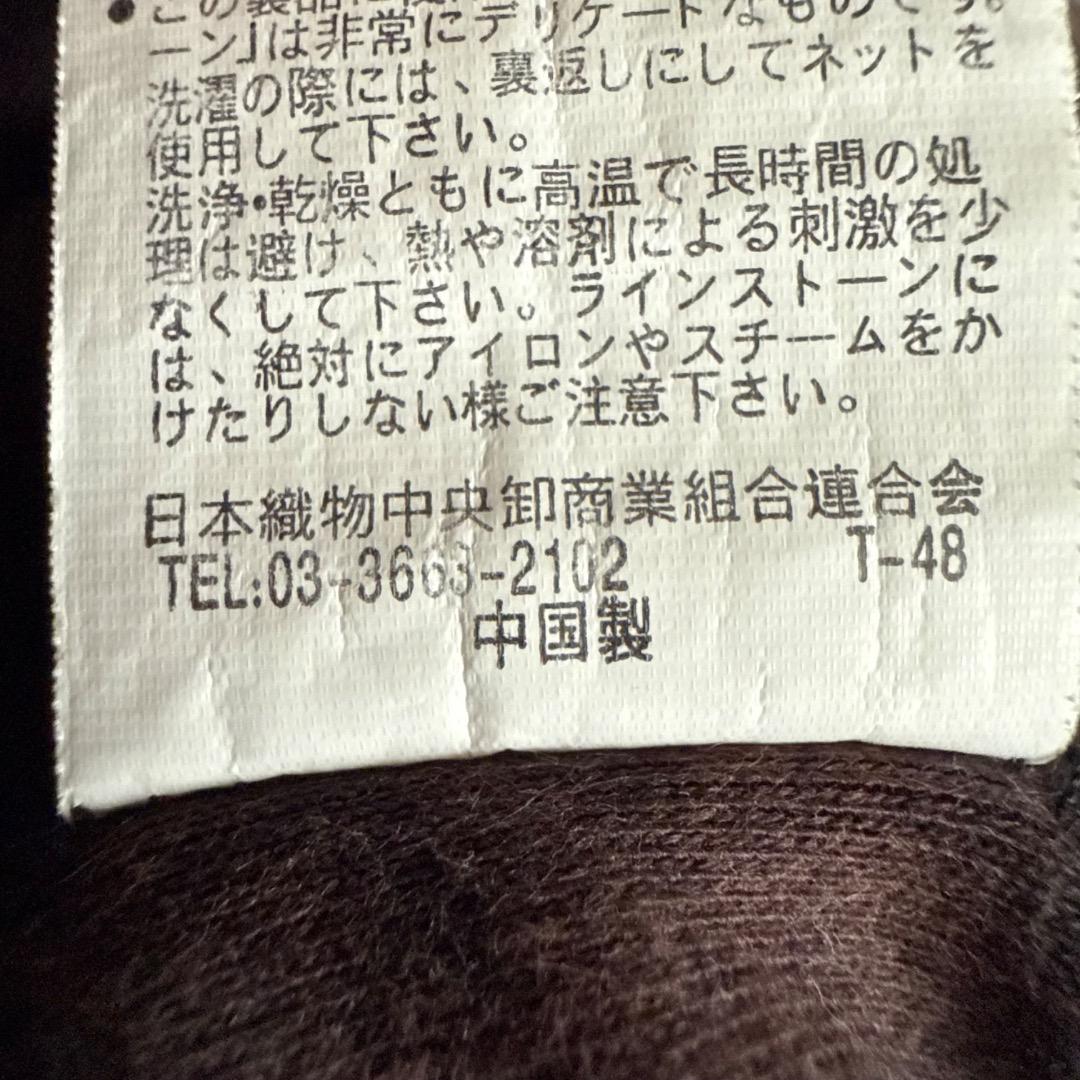 ●この製品に使
ーン」は非常にデリケートなものです。
洗濯の際には、裏返しにしてネットを
使用して下さい。
洗浄・乾燥ともに高温で長時間の処
理は避け、熱や溶剤による刺激を少
なくして下さい。ラインストーンに
は、絶対にアイロンやスチームをか
けたりしない様ご注意下さい。
日本織物中央卸商業組合連合会
TEL:03-3663-2102 T-48
中国製